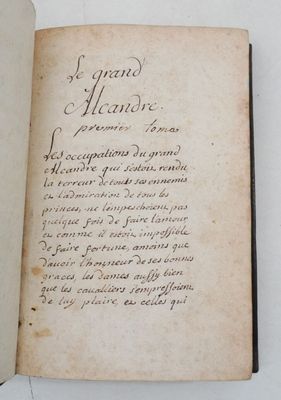 Le grand
Alcandre.
premier tome
Les occupations du grand
Alcandre qui s'estoit rendu
la terreur de touts ses ennemis
et l'admiration de tous les
princes, ne l'empeschoient pas
quelque fois de faire l'amour
et comme il estoit impossible
de faire fortune, amoins que
d'avoir l'honneur de ses bonnes
graces, les dames aussy bien
que les cavalliers s'empressoient
de luy plaire, et celles qui